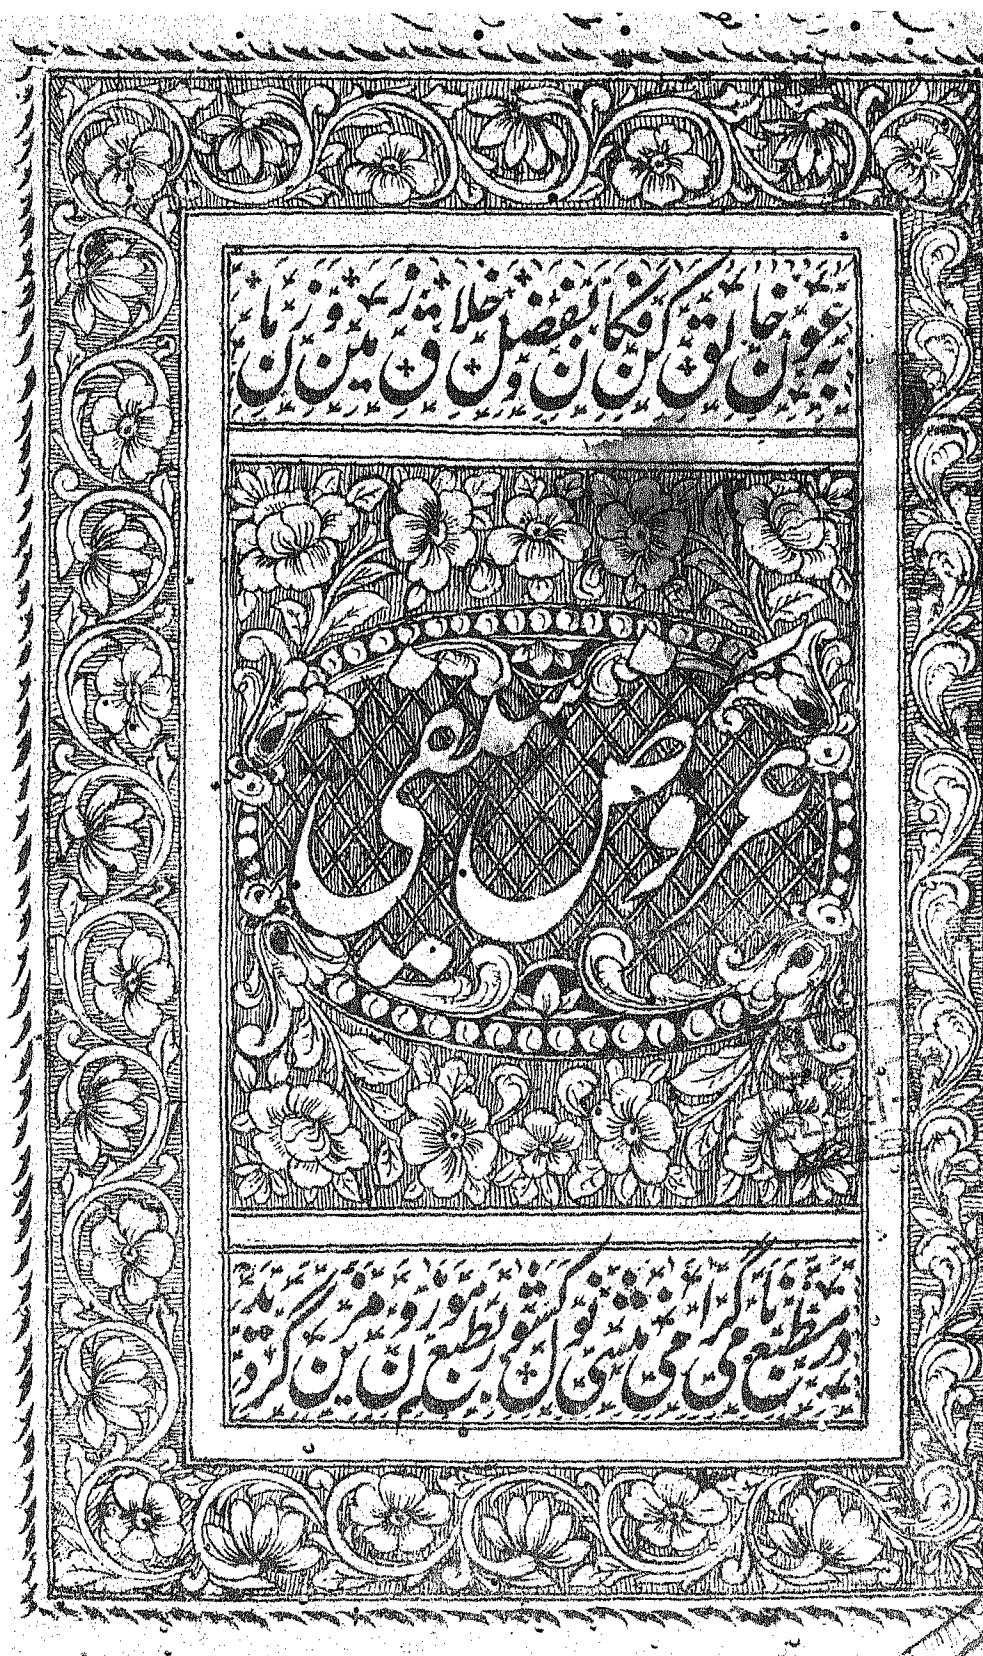 بعون خالق کن فکان و بفضل خلاق زمین و زمان
عروض سیفی
در مطبع نامی گرامی منشی نولکشور بطبع مزین گردید